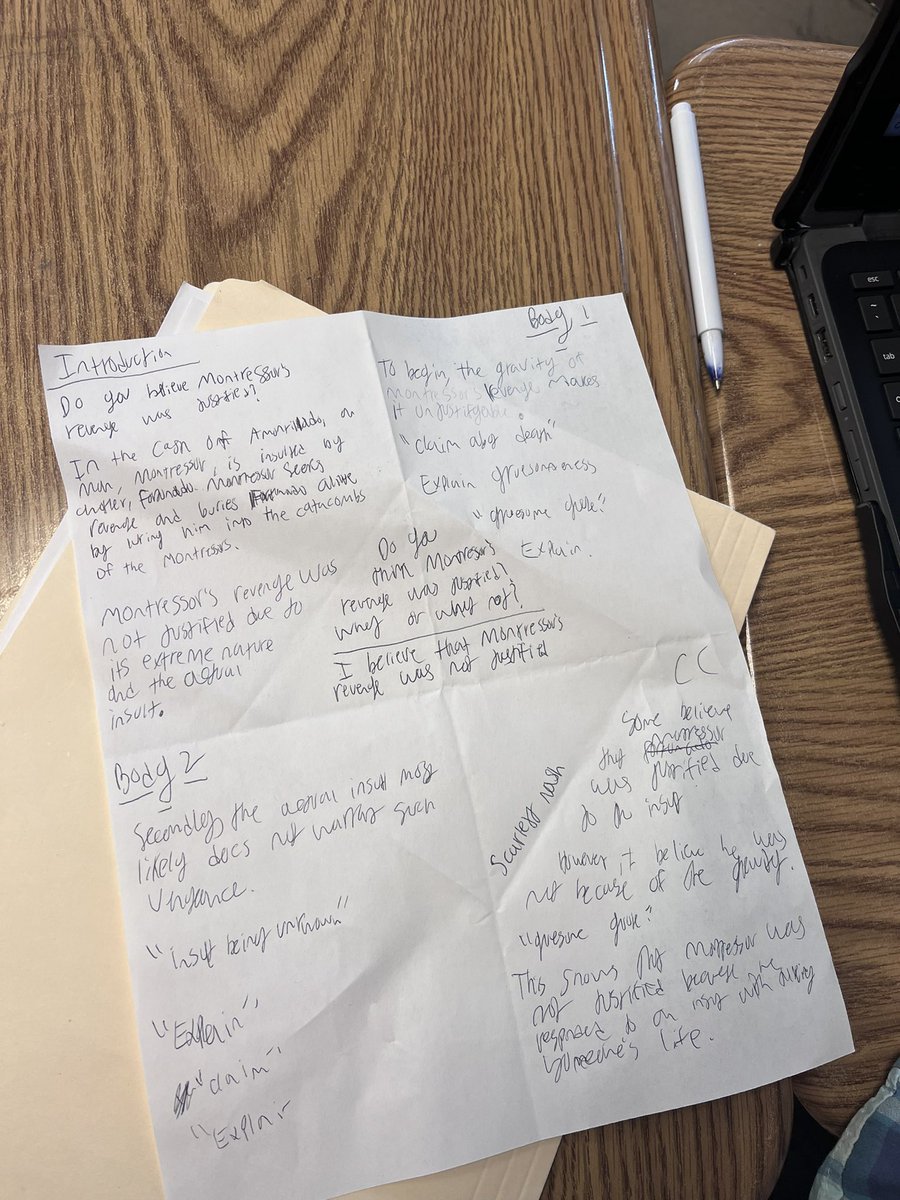 Introduction
Do you believe Montressor's
revenge was justified?
In the Cask of Amontillado, on
man, Montressor, is insulted by
another, Fortunado. Montressor seeks
revenge and buries Fortunado alive
by luring him into the catacombs
of the Montresors.
Montressor's revenge was
not justified due to
its extreme nature
and the actual
insult.
Body 1
To begin, the gravity of
montressor's revenge makes
it unjustifyable.
"Claim abt death"
Explain gruesomeness
"gruesome quote."
Explain.
Do you
think Montressor's
revenge was justified?
Why or why not?
I believe that Montressor's
revenge was not justified
Body 2
Secondly, the actual insult most
likely does not warrant such
vengance.
"insult being unknown"
"Explain"
"claim"
"Explain
CC
Some believe
that montressor
was justified due
to an insult
However it believe he was
not because of the gravity.
"gruesome quote."
This shows that Montressor was
not justified because he
responded to an insult with
someone's life.
esc
tab